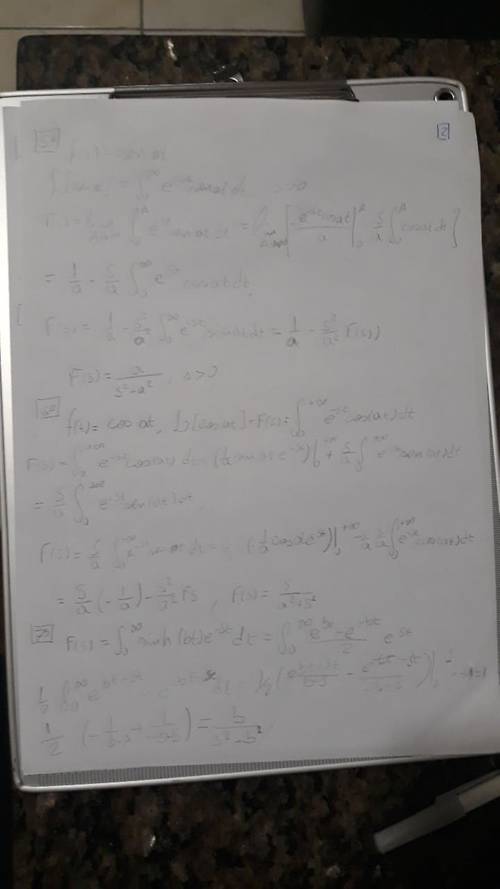 2
5ª f(t) = sen at
= ∫₀^∞ e^-st sen at dt, s>0
F(s) = lim ∫₀^A e^-st sen at dt = lim [ -e^-st cos at / a |₀^A - s/a ∫₀^A cos at dt ]
= 1/a - s/a ∫₀^∞ e^-st cos at dt
F(s) = 1/a - s²/a² ∫₀^∞ e^-st sen at dt = 1/a - s²/a² F(s)
F(s) = a/(s²+a²), s>0
6ª f(t) = cos at, L[cos at] = F(s) = ∫₀^+∞ e^-st cos(at) dt
F(s) = ∫₀^+∞ e^-st cos(at) dt = e^-st) |₀^+∞ + s/a ∫₀^+∞ e^-st sen(at) dt
= s/a ∫₀^+∞ e^-st sen(at) dt
F(s) = s/a ∫₀^+∞ e^-st sen at dt = (-1/a cos at e^-st) |₀^+∞ - s/a s/a ∫₀^+∞ e^-st cos(at) dt
= s/a (-1/a) - s²/a² Fs, F(s) = s/(a²+s²)
7ª F(s) = ∫₀^∞ sinh(bt) e^-st dt = ∫₀^∞ (e^bt - e^-bt)/2 e^-st
1/2 ∫₀^∞ e^bt-st - e^-bt-st dt = 1/2 (e^bt-st/b-s - e^-bt-st/-b-s) |₀
1/2 (-1/b-s + 1/-s-b) = b/(s²-b²)